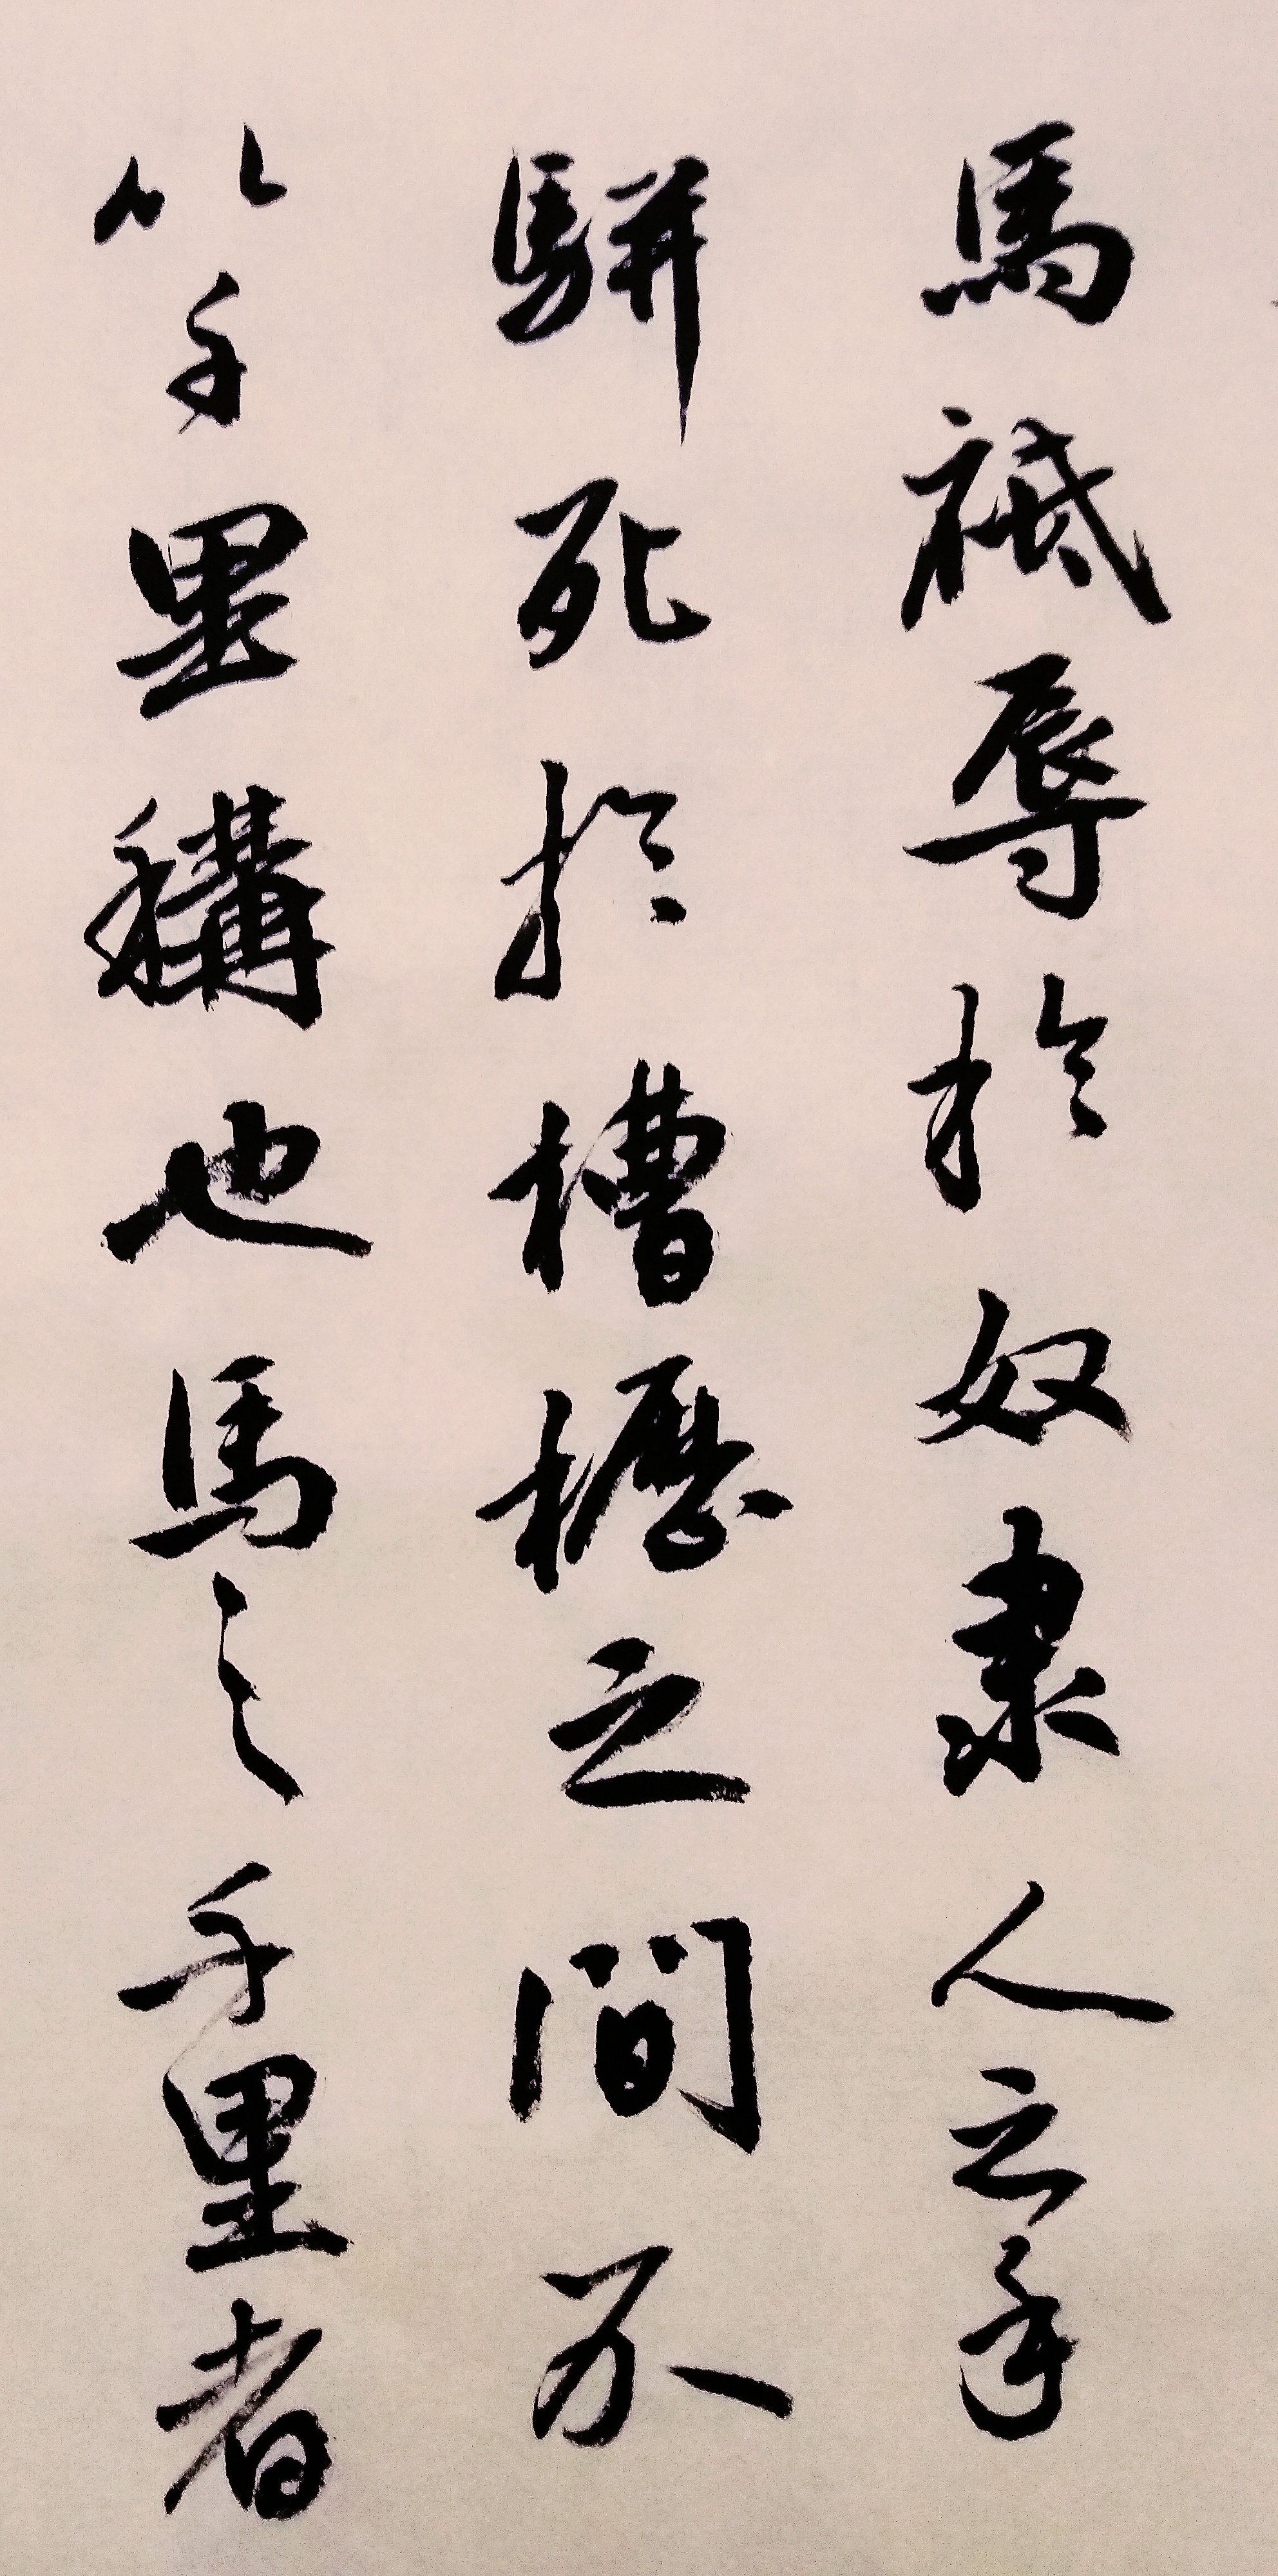 馬祇辱於奴隸人之手
駢死於槽櫪之間不
以千里稱也馬之千里者